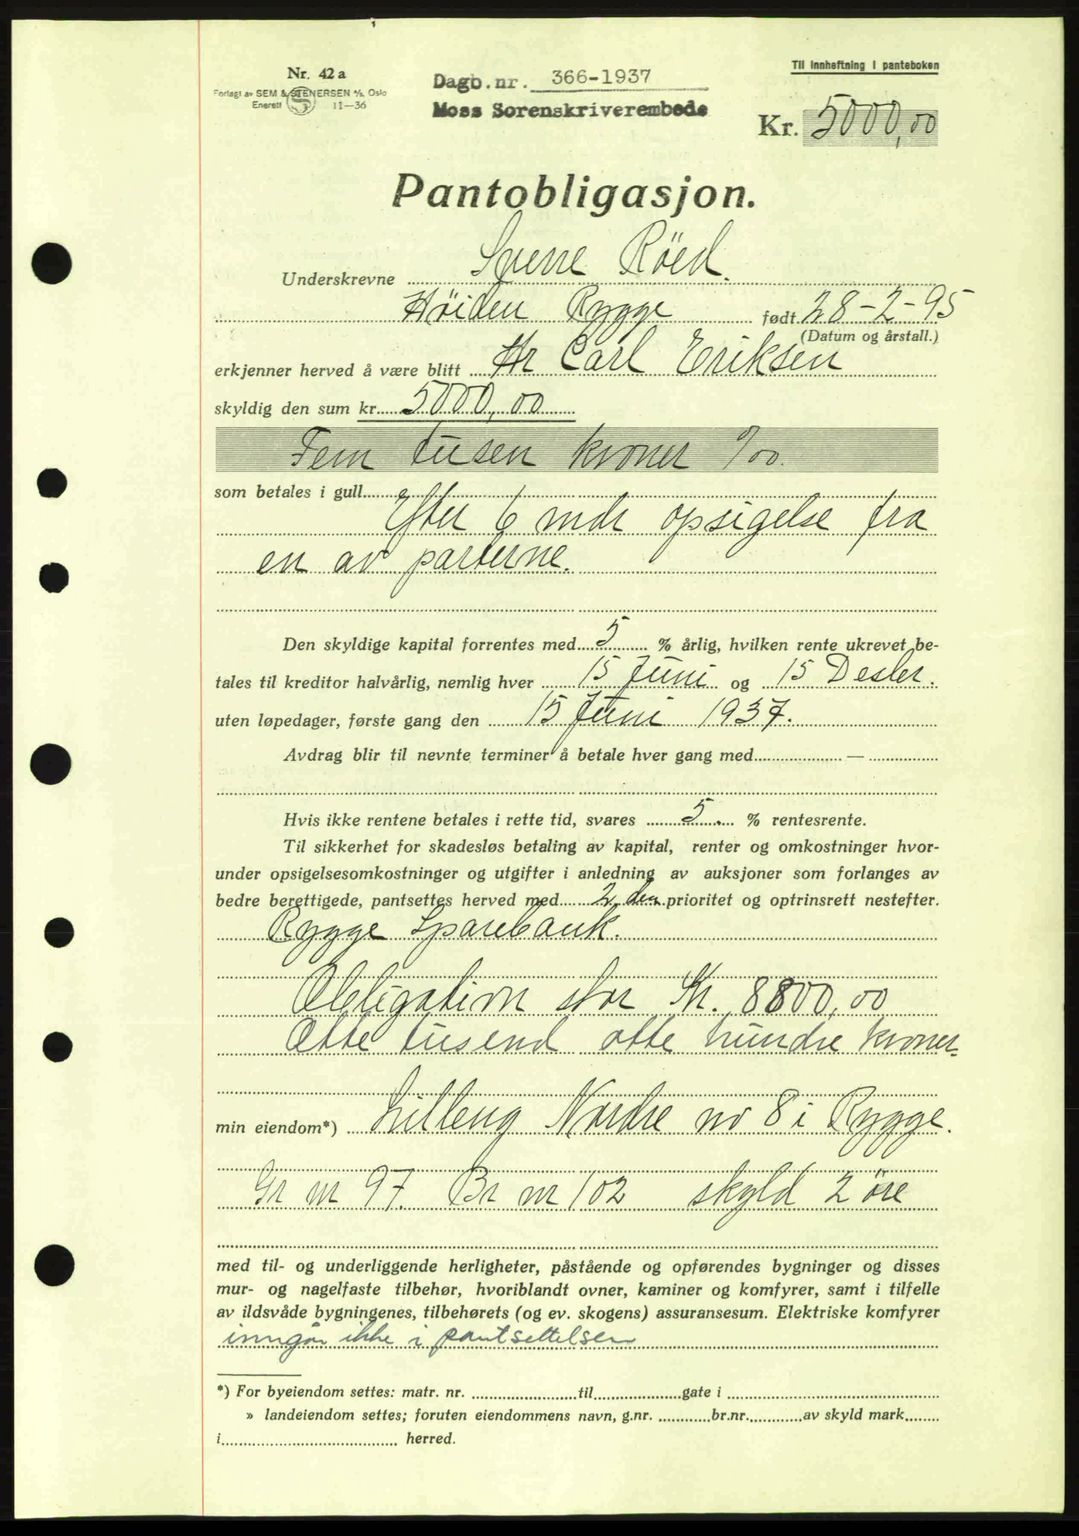 Nr. 42 a
Forlagt av SEM & STENERSEN A/S, Oslo
Enerett 11—36
Dagb.nr. 366-1937
Moss Sorenskriverembede
Til innheftning i panteboken
Kr. 5000,00
Pantobligasjon.
Underskrevne Sverre Röed.
Høiden Rygge født 28-2-95
(Datum og årstall.)
erkjenner herved å være blitt Hr Carl Eriksen
skyldig den sum kr. 5000,00
Fem tusen kroner 0/00.
som betales i gull
Efter 6 mdr opsigelse fra
en av parterne.
Den skyldige kapital forrentes med 5 % årlig, hvilken rente ukrevet be-
tales til kreditor halvårlig, nemlig hver 15 Juni og 15 Desbr.
uten løpedager, første gang den 15 Juni 1937.
Avdrag blir til nevnte terminer å betale hver gang med —
Hvis ikke rentene betales i rette tid, svares 5. % rentesrente.
Til sikkerhet for skadesløs betaling av kapital, renter og omkostninger hvor-
under opsigelsesomkostninger og utgifter i anledning av auksjoner som forlanges av
bedre berettigede, pantsettes herved med 2 den prioritet og optrinsrett nestefter.
Rygge Sparebank.
Obligation stor Kr. 8800,00
Otte tusend otte hundre kroner
min eiendom*) Lilleng Nordre nr 8 i Rygge.
Gr nr 97. Br nr 102 skyld 2 øre
med til- og underliggende herligheter, påstående og opførendes bygninger og disses
mur- og nagelfaste tilbehør, hvoriblandt ovner, kaminer og komfyrer, samt i tilfelle
av ildsvåde bygningenes, tilbehørets (og ev. skogens) assuransesum. Elektriske komfyrer
inngår ikke i pantsettelsen
*) For byeiendom settes: matr. nr. til gate i
» landeiendom settes; foruten eiendommens navn, g.nr. br.nr. av skyld mark
i herred.